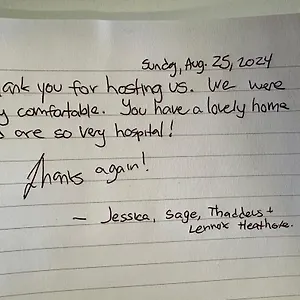 Sunday, Aug. 25, 2024
ank you for hosting us. We were
y comfortable. You have a lovely home
are so very hospital!
Thanks again!
— Jessica, Sage, Thaddeus +
Lennox Heathore.